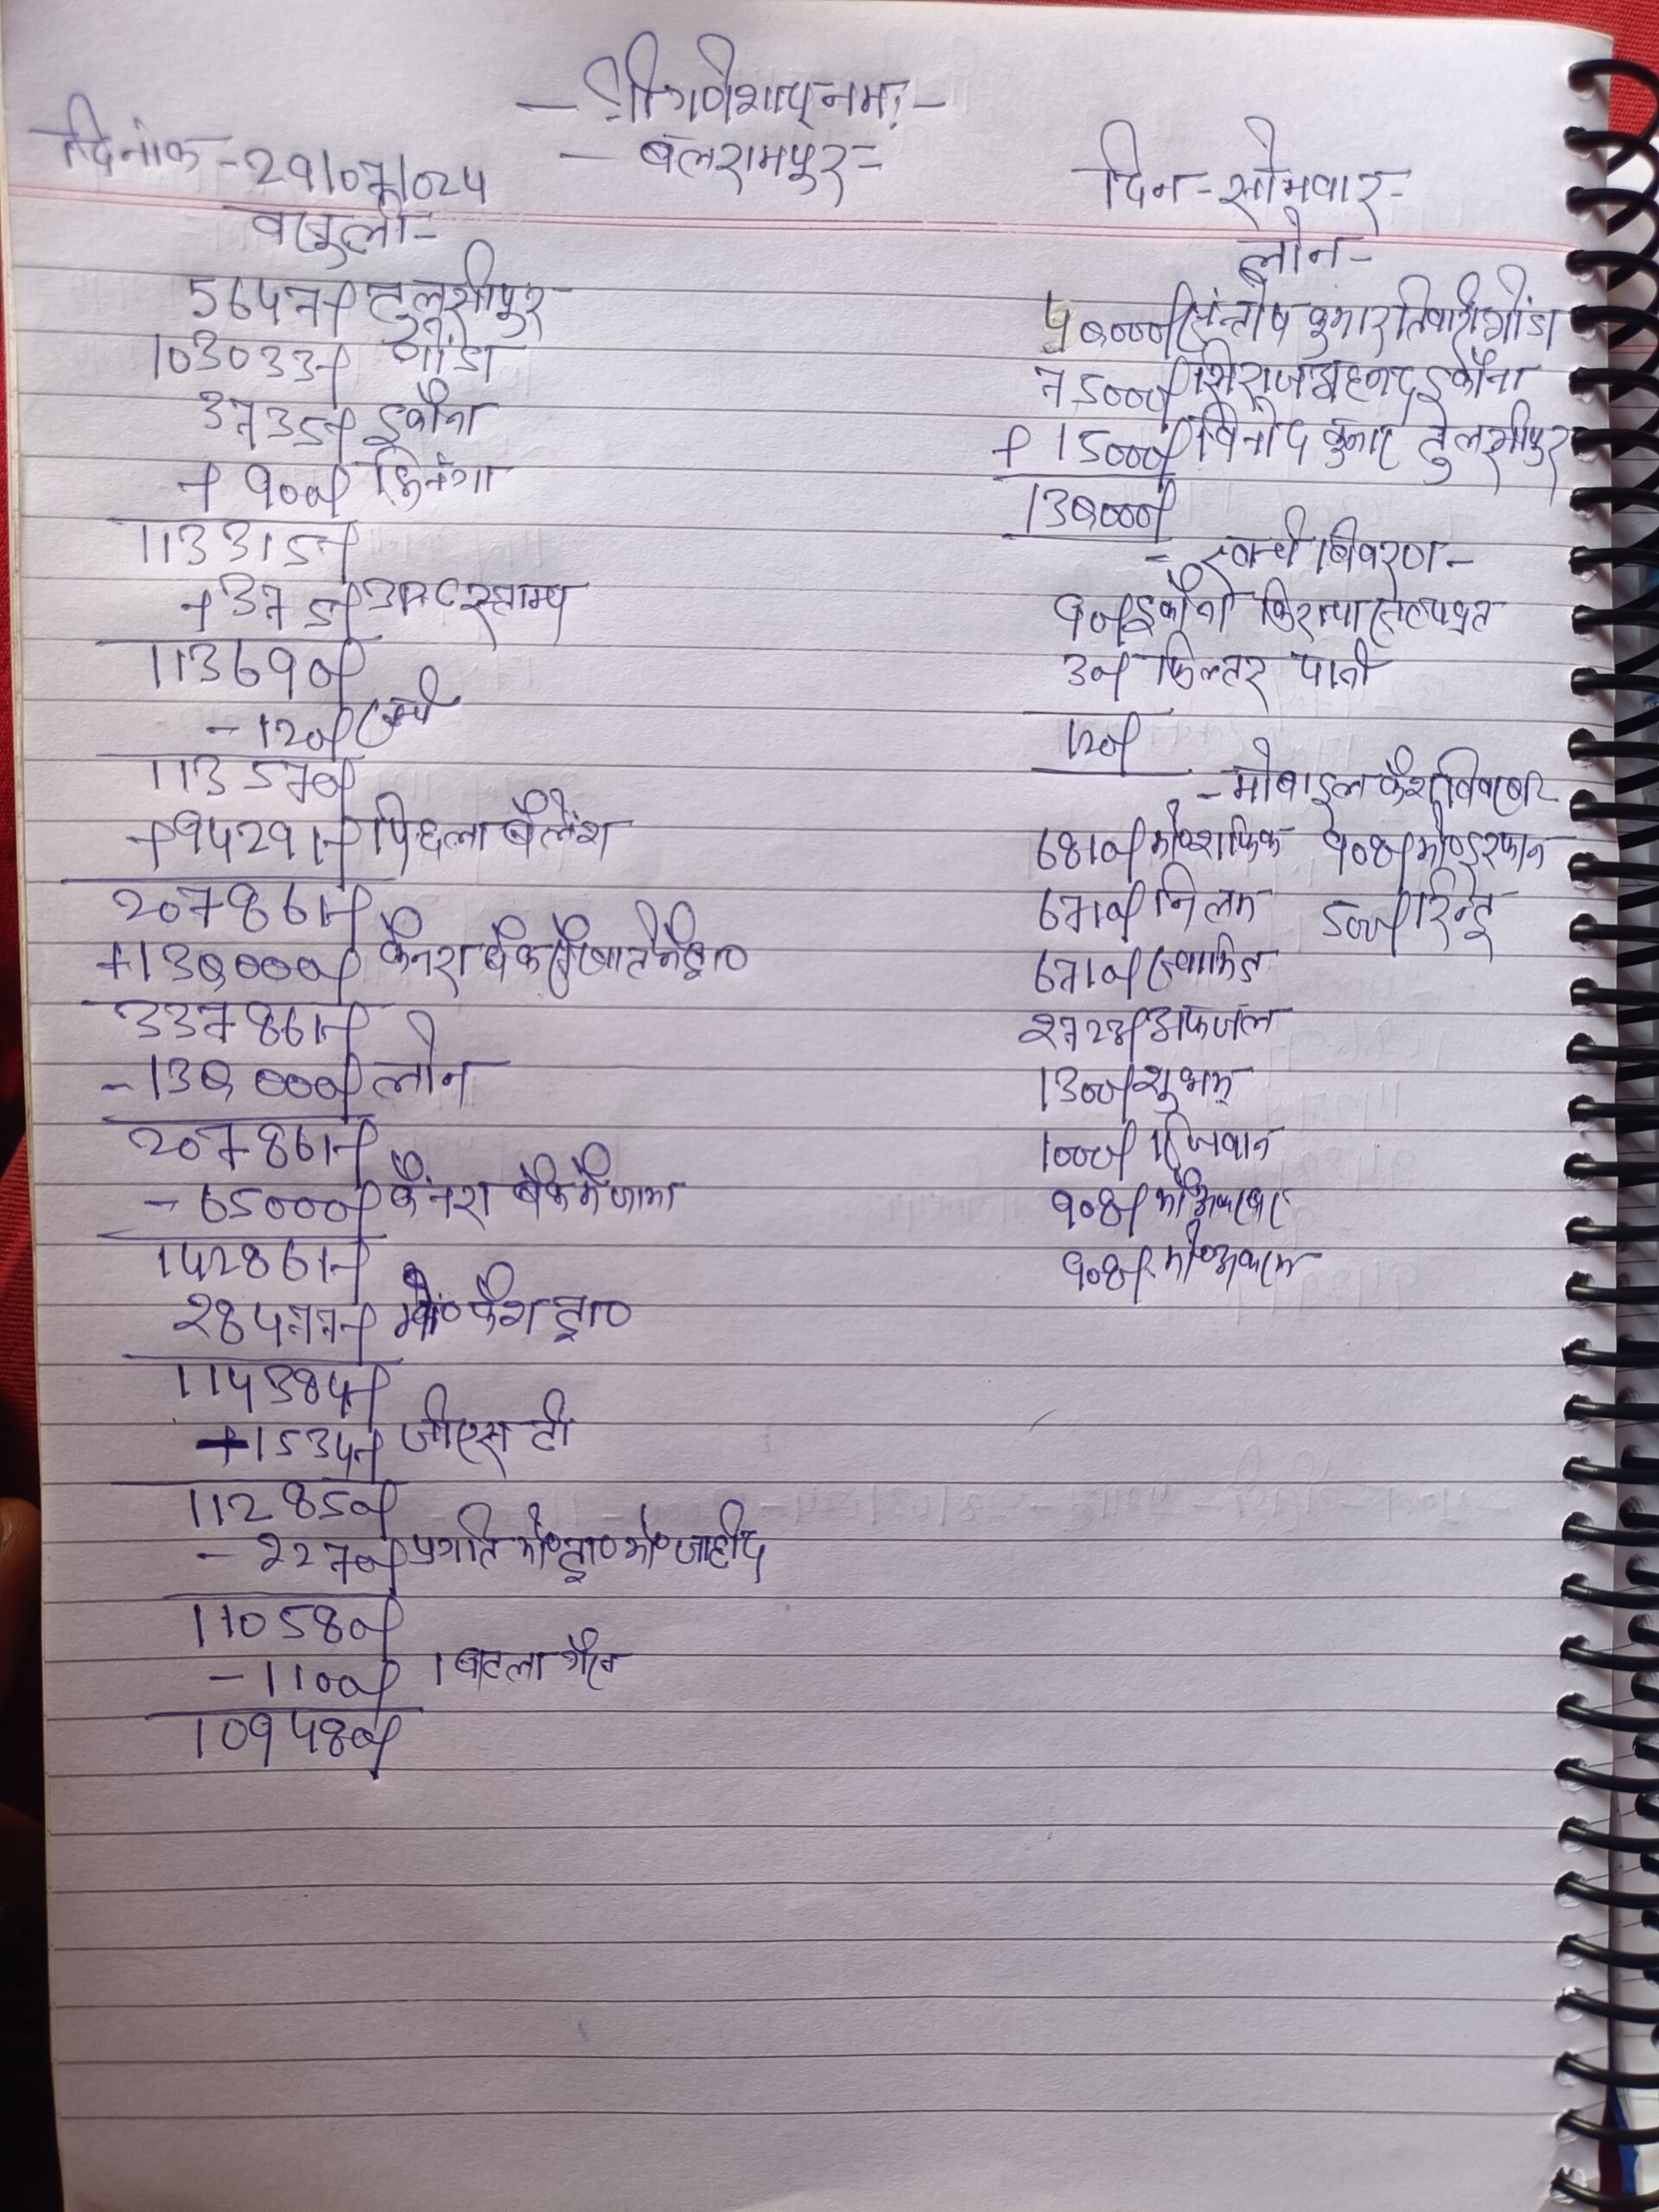 - श्री गणेशाय् नमः -
दिनांक - 29/07/024
- बलरामपुर =
दिन - सोमवार -
वसुली -
5647/- तुलसीपुर
103033/- गोंडा
3735/- इकौना
+ 900/- भिनगा
113315/-
+ 375/- स्टाम्प
113690/-
- 120/- खर्च
113570/-
+ 94291/- पिछला बैलेंश
207861/-
+ 130,000/- कैनरा बैंक से खाते से द्वा०
337861/-
- 130,000/- लोन
207861/-
- 65000/- कैनरा बैंक में जमा
142861/-
28477/- मो० कैश द्वा०
114384/-
+ 1534/- जीएस टी
112850/-
- 2270/- प्रगति मो० द्वा० मो० जाहीद
110580/-
- 1100/-
109480/-
लोन -
40000/- संन्तोष कुमार तिवारी गोंडा
75000/- सिराज अहमद इकौना
+ 15000/- विनोद कुमार तुलसीपुर
130000/-
= खर्च विवरण -
90/- इकौना किराया
30/- फिल्टर पानी
120/-
- मोबाइल कैश
6810/- मो० शफिक 908/- मो० इरफान
6710/- निलम 500/- रिन्टू
6710/-
2723/- अफजल
1300/- शुभम्
1000/- रिजवान
908/-
908/- मो० अकरम